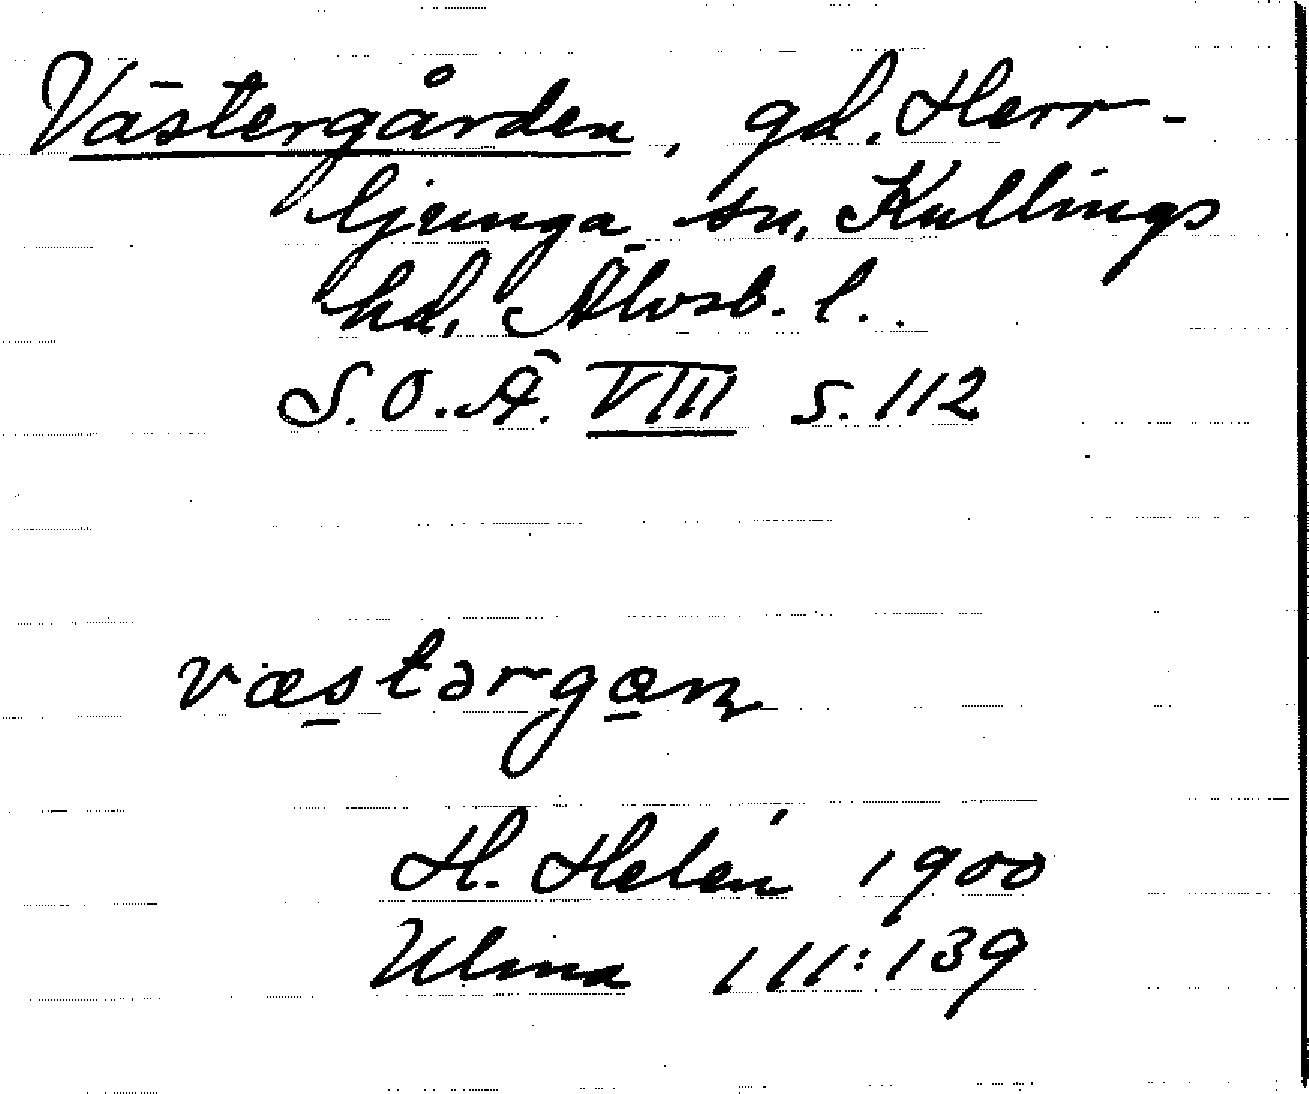 Västergården, gd, Herr-
ljunga sn, Kullings
hd, Älvsb. l.
S.O.Ä. VIII s. 112
væstərgɑn
H. Helén 1900
Ulma 111:139